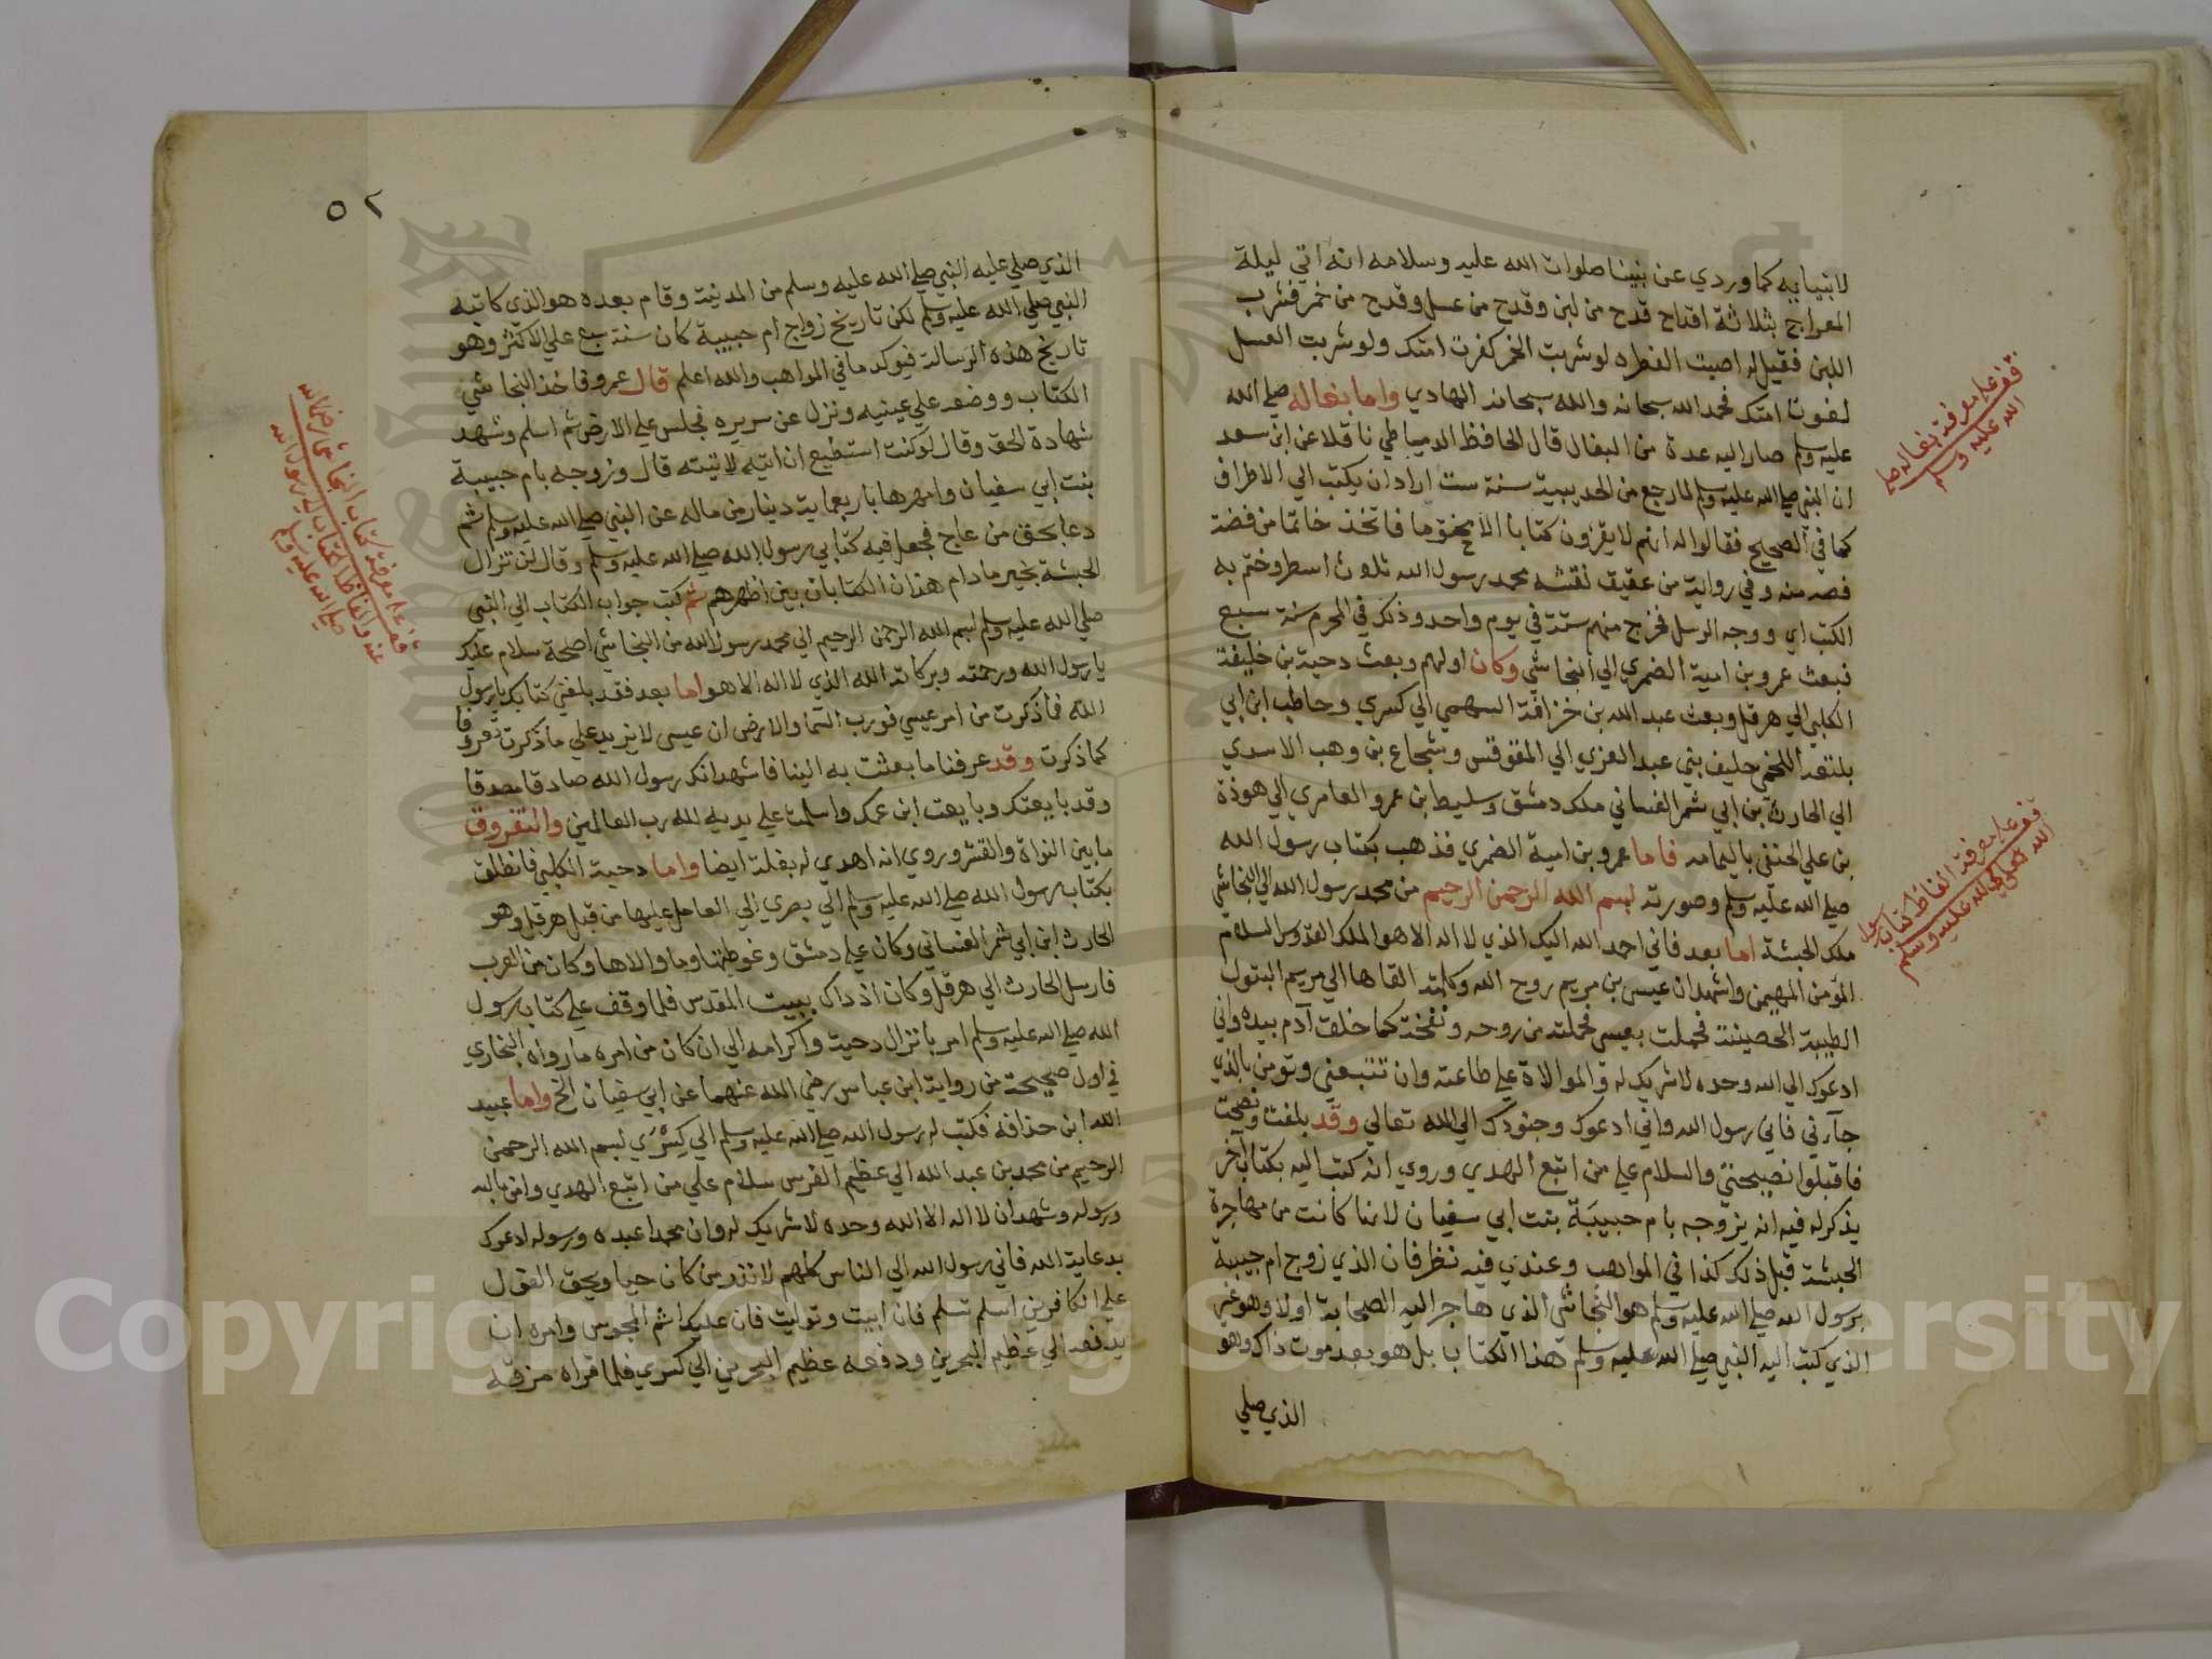 لانبيايه كما وردي عن نبينا صلوات الله عليه وسلامه انه اتي ليلة
المعراج بثلاثة اقداح قدح من لبن وقدح من عسل وقدح من خمر فشرب
اللبن فقيل له اصبت الفطره لو شربت الخمر كفرت امتك ولو شربت العسل
لغوت امتك فحمد الله سبحانه والله سبحانه الهادي واما بغاله صلي الله
عليه وسلم صار اليه عدة من البغال قال الحافظ الدمياطي ناقلا عن ابن سعد
ان النبي صلي الله عليه وسلم لما رجع من الحديبية سنة ست اراد ان يكتب الي الاطراف
كما في الصحيح فقالوا له انهم لا يقرؤن كتابا الا مختوما فاتخذ خاتما من فضة
فصه منه وفي رواية من عقيق نقشه محمد رسول الله ثلاث اسطر وختم به
الكتب اي ووجه الرسل فخرج منهم ستة في يوم واحد وذلك في المحرم سنة سبع
فبعث عمرو بن امية الضمري الي النجاشي وكان اولهم وبعث دحية بن خليفة
الكلبي الي هرقل وبعث عبد الله بن خزافة السهمي الي كسري وحاطب ابن ابي
بلتعة اللخمي حليف بني عبد العزي الي المقوقس وشجاع بن وهب الاسدي
الي الحارث بن ابي شمر الغساني ملك دمشق وسليط ابن عمرو العامري الي هوذة
بن علي الحنفي باليمامه فاما عمرو بن امية الضمري فذهب بكتاب رسول الله
صلي الله عليه وسلم وصورته بسم الله الرحمن الرحيم من محمد رسول الله الي النجاشي
ملك الحبشة اما بعد فاني احمد الله اليك الذي لا اله الا هو الملك القدوس السلام
المؤمن المهيمن واشهد ان عيسي بن مريم روح الله وكلمته القاها الي مريم البتول
الطيبة الحصينة فحملت بعيسي فحملته من روحه ونفخته كما خلق آدم بيده واني
ادعوك الي الله وحده لا شريك له والموالاة علي طاعته وان تتبعني وتومن بالذي
جآءني فاني رسول الله واني ادعوك وجنودك الي الله تعالي وقد بلغت ونصحت
فاقبلوا نصيحتي والسلام علي من اتبع الهدي وروي انه كتب اليه بكتاب آخر
يذكر له فيه انه يزوجه بام حبيبة بنت ابي سفيان لانها كانت من مهاجرة
الحبشة قبل ذلك كذا في المواهب وعندي فيه نظر فان الذي زوج ام حبيبة
برسول الله صلي الله عليه وسلم هو النجاشي الذي هاجر اليه الصحابة اولا وهو غير
الذي كتب اليه النبي صلي الله عليه وسلم هذا الكتاب بل هو بعد موت ذاك وهو
الذي صلي
قف علي معرفة بغاله صلي
الله عليه وسلم
قف علي معرفة الفاظ كتاب رسول
الله صلي الله عليه وسلم
٥٢
الذي صلي عليه النبي صلي الله عليه وسلم من المدينة وقام بعده هو الذي كاتبه
النبي صلي الله عليه وسلم لكن تاريخ زواج ام حبيبة كان سنة سبع علي الاكثر وهو
تاريخ هذه الرسالة فيوكد ما في المواهب والله اعلم قال عمرو فاخذ النجاشي
الكتاب ووضعه علي عينيه ونزل عن سريره فجلس علي الارض ثم اسلم وشهد
شهادة الحق وقال لو كنت استطيع ان اتيه لاتيته قال وزوجه بام حبيبة
بنت ابي سفيان وامهرها باربعماية دينار من ماله عن النبي صلي الله عليه وسلم ثم
دعا بحق من عاج فجعل فيه كتابي رسول الله صلي الله عليه وسلم وقال لن تزال
الحبشة بخير ما دام هذان الكتابان بين اظهرهم ثم كتب جواب الكتاب الي النبي
صلي الله عليه وسلم بسم الله الرحمن الرحيم الي محمد رسول الله من النجاشي اصحمة سلام عليك
يا رسول الله ورحمته وبركاته الله الذي لا اله الا هو اما بعد فقد بلغني كتابك يا رسول
الله فما ذكرت من امر عيسي فورب السما والارض ان عيسي لا يزيد علي ما ذكرت ثفروقا
كما ذكرت وقد عرفنا ما بعثت به الينا فاشهد انك رسول الله صادقا مصدقا
وقد بايعتك وبايعت ابن عمك واسلمت علي يديه لله رب العالمين والثفروق
ما بين النواة والقشر وروي انه اهدي له بغلة ايضا واما دحية الكلبي فانطلق
بكتاب رسول الله صلي الله عليه وسلم الي بصري الي العامل عليها من قبل هرقل وهو
الحارث ابن ابي شمر الغساني وكان علي دمشق وغوطتها وما والاها وكان من العرب
فارسل الحارث الي هرقل وكان اذ ذاك ببيت المقدس فلما وقف علي كتاب رسول
الله صلي الله عليه وسلم امر بانزال دحية واكرامه الي ان كان من امره ما رواه البخاري
في اول صحيحه من رواية ابن عباس رضي الله عنهما عن ابي سفيان الخ واما عبيد
الله ابن حذافة فكتب له رسول الله صلي الله عليه وسلم الي كسري بسم الله الرحمن
الرحيم من محمد بن عبد الله الي عظيم الفرس سلام علي من اتبع الهدي وامن بالله
ورسوله وشهد ان لا اله الا الله وحده لا شريك له وان محمدا عبده ورسوله ادعوك
بدعاية الله فاني رسول الله الي الناس كلهم لانذر من كان حيا ويحق القول
علي الكافرين اسلم تسلم فان ابيت وتوليت فان عليك اثم المجوس وامره ان
يدفعه الي عظيم البحرين ودفعه عظيم البحرين الي كسري فلما قراه مزقه
قف علي معرفة كتاب النجاشي رضي الله
عنه والفاظ الكتاب الي رسول الله
صلي الله عليه وسلم
Copyright © King Saud University